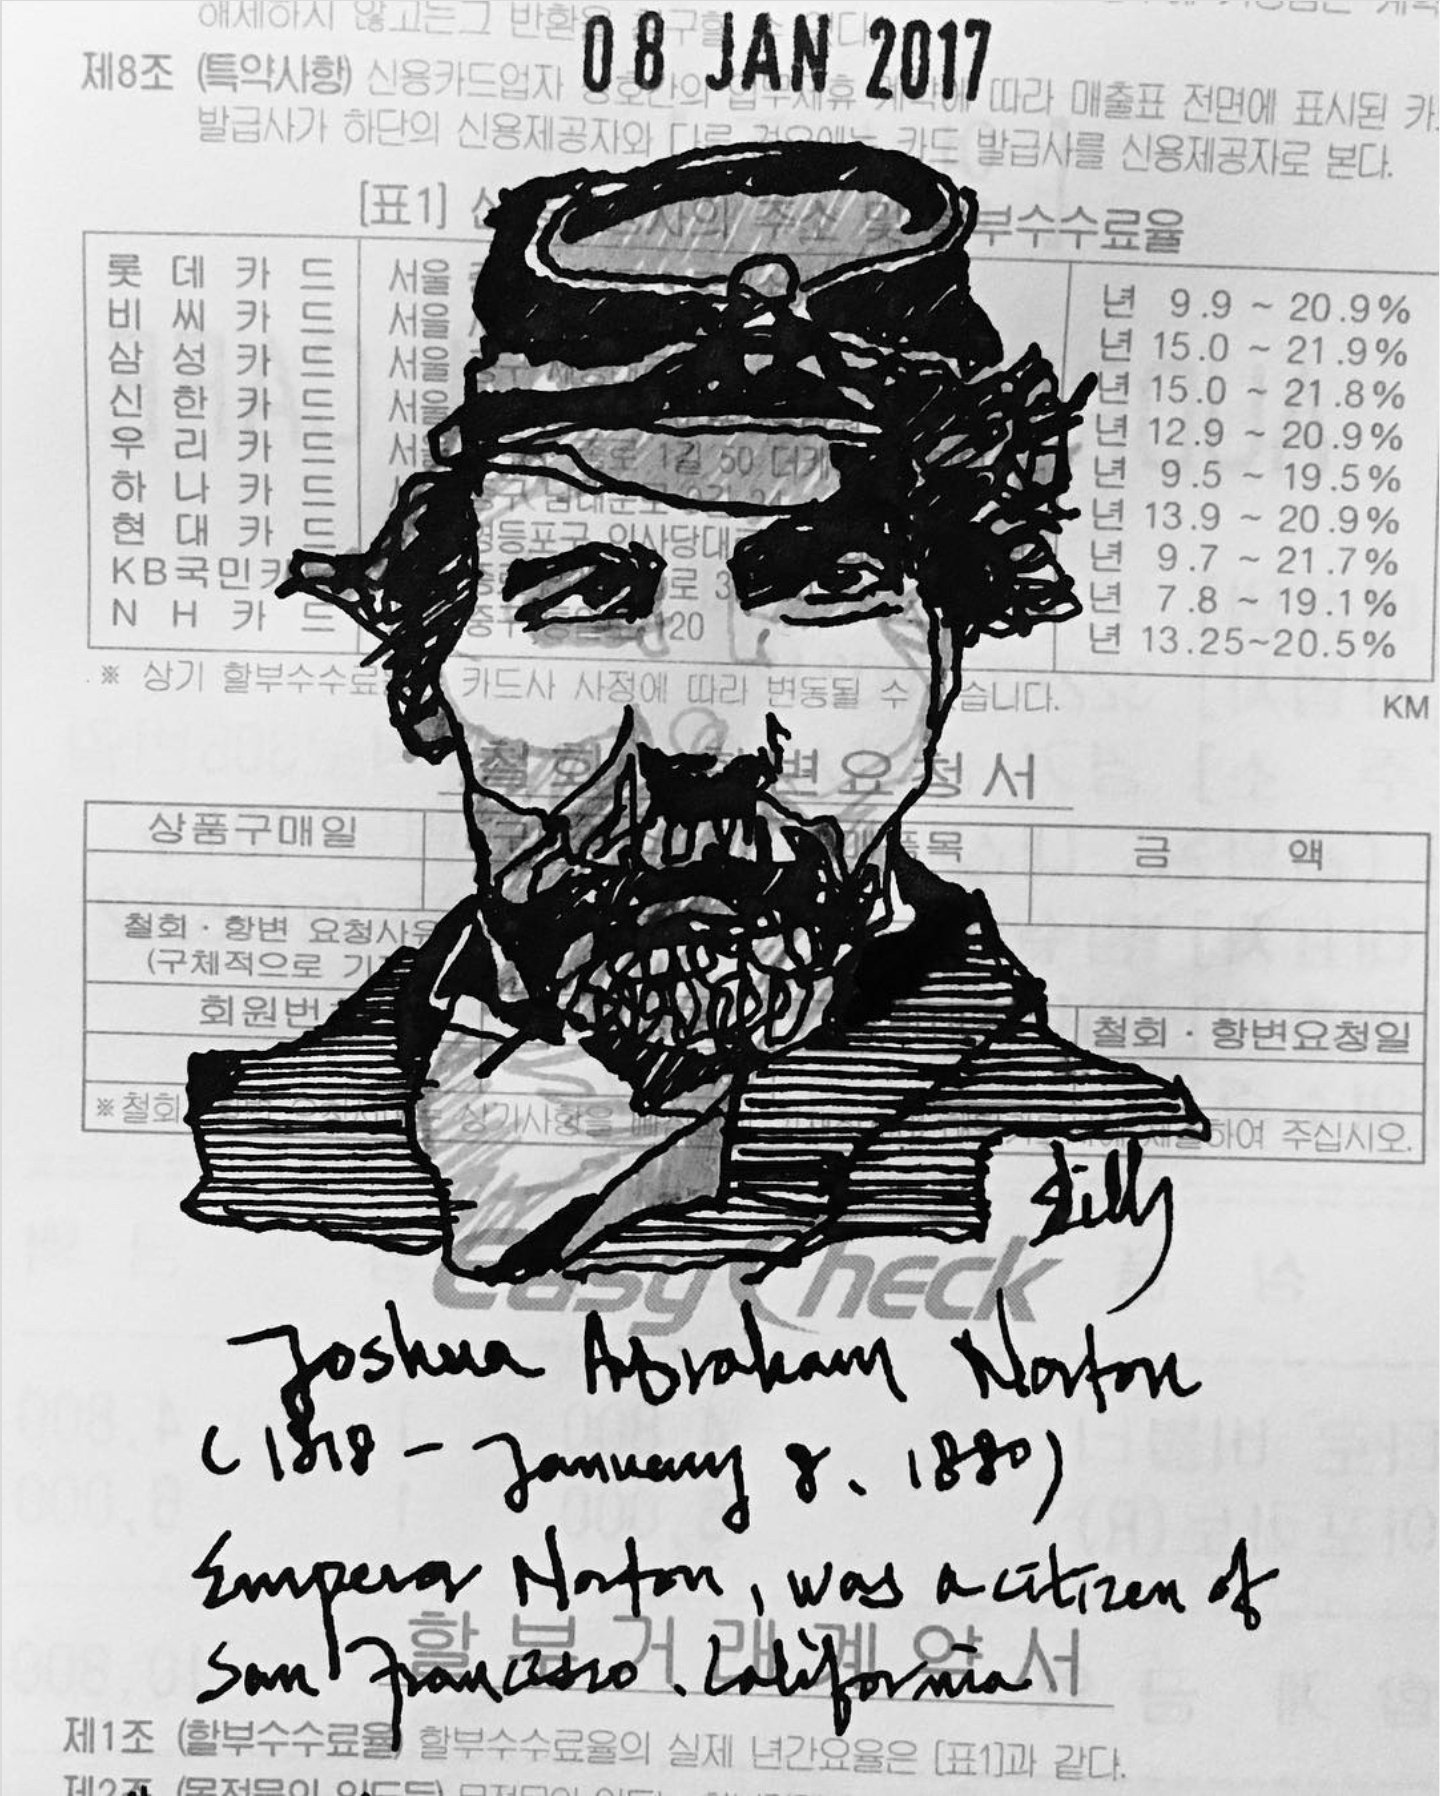 애세하지 않고는그 반환을 청구할 수 없다.
08 JAN 2017
제8조 (특약사항) 신용카드업자 상호간의 업무제휴 계약에 따라 매출표 전면에 표시된 카
발급사가 하단의 신용제공자와 다른 경우에는 카드 발급사를 신용제공자로 본다.
[표1] 신 사의 주소 및 부수수료율
롯데카드 서울 년 9.9 ~ 20.9%
비씨카드 서울 년 15.0 ~ 21.9%
삼성카드 서울 년 15.0 ~ 21.8%
신한카드 서울 년 12.9 ~ 20.9%
우리카드 서울 1길 50 더케 년 9.5 ~ 19.5%
하나카드 년 13.9 ~ 20.9%
현대카드 영등포구 의사당대 년 9.7 ~ 21.7%
KB국민카 년 7.8 ~ 19.1%
NH카드 중구 120 년 13.25~20.5%
※ 상기 할부수수료 카드사 사정에 따라 변동될 수 있습니다.
KM
철회 항변요청서
상품구매일 품목 금액
철회·항변 요청사유
(구체적으로 기재
회원번 철회·항변요청일
※철회 상기사항을 하여 주십시오.
Silly
EasyCheck
Joshua Abraham Norton
(1818 - January 8, 1880)
Emperor Norton, was a citizen of
San Francisco. California
할부거래계약서
제1조 (할부수수료율) 할부수수료율의 실제 년간요율은 [표1]과 같다.
제2조